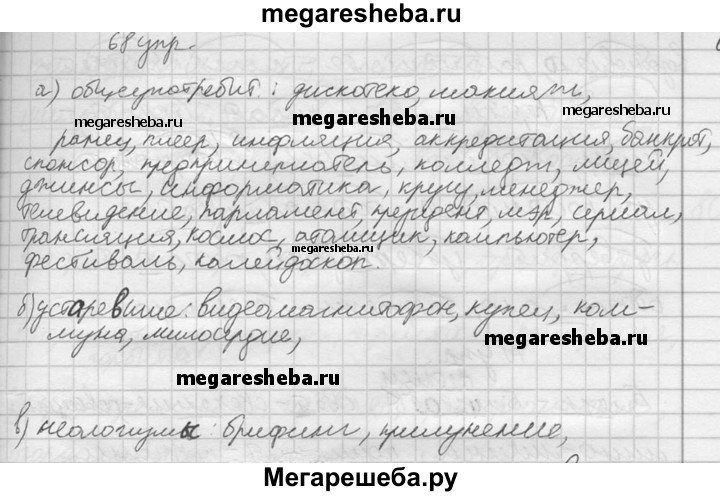 megaresheba.ru
68 упр.
а) общеупотребит.: дискотека, макияж,
megaresheba.ru
megaresheba.ru
ранец, плеер, инфляция, аккредитация, банкрот,
спонсор, предприниматель, колледж, лицей,
джинсы, информатика, круиз, менеджер,
телевидение, парламент, президент, мэр, сериал,
трансляция, космос, атомщик, компьютер,
фестиваль, калейдоскоп.
megaresheba.ru
б) устаревшие: видеомагнитофон, купец, ком-
муна, милосердие,
megaresheba.ru
megaresheba.ru
в) неологизмы: брифинг, прилунение,
Мегарешеба.ру